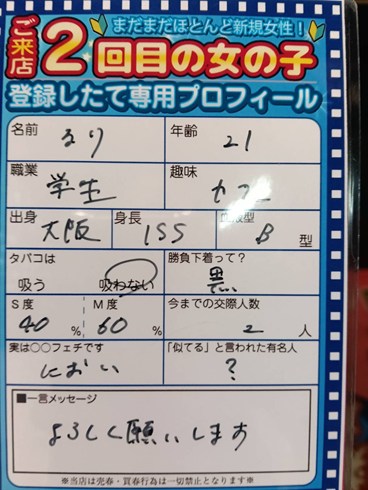 まだまだほとんど新規女性!
ご来店2回目の女の子
登録したて専用プロフィール
名前 るり 年齢 21
職業 学生 趣味 カフェ
出身 大阪 身長 155 血液型 B 型
タバコは 勝負下着って?
吸う 吸わない 黒
S度 M度 今までの交際人数
40 % 60 % 2 人
実は○○フェチです 「似てる」と言われた有名人
におい ?
■一言メッセージ
よろしく願いします
※当店は売春・買春行為は一切禁止となります※